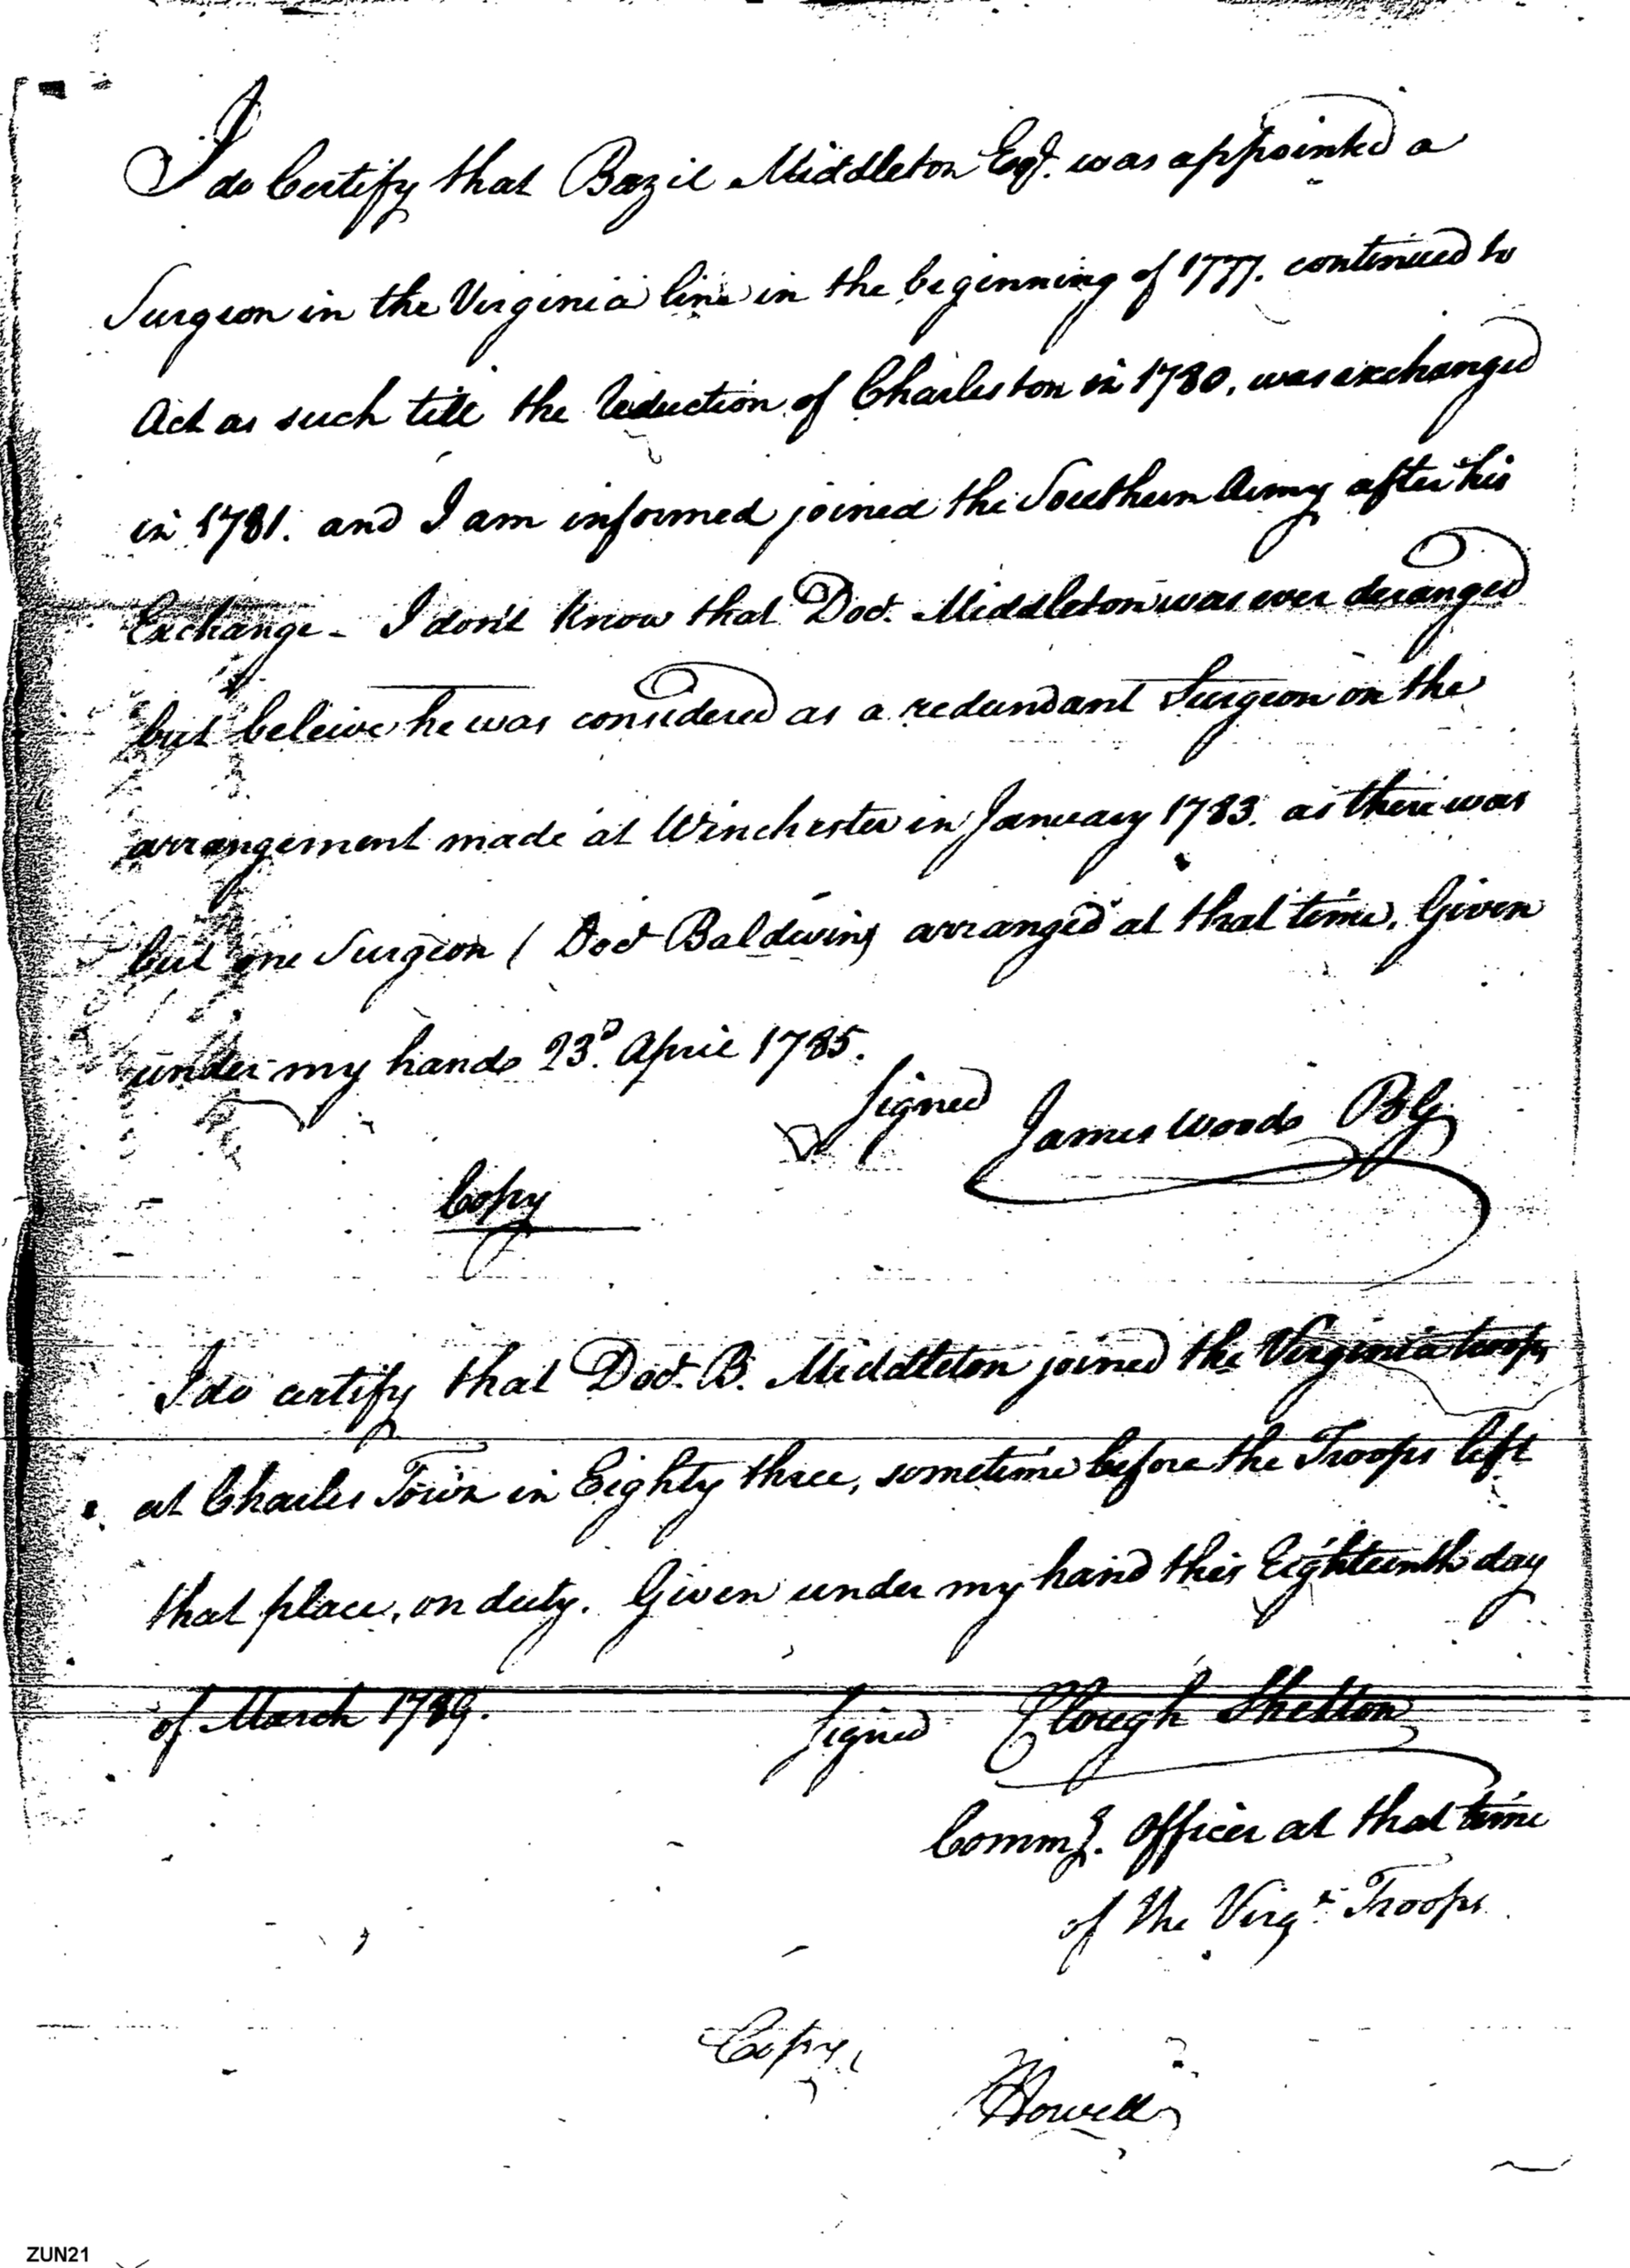 I do Certify that Bazil Middleton Esqr. was appointed a
Surgeon in the Virginia line in the beginning of 1777. continued to
Act as such till the Reduction of Charleston in 1780, was exchanged
in 1781. and I am informed joined the Southern Army after his
Exchange - I don't know that Doct. Middleton was ever deranged
but beleive he was considered as a redundant Surgeon on the
arrangement made at Winchester in January 1783. as there was
but one Surgeon (Doct Baldwin) arranged at that time. Given
under my hand 23d. April 1785.
Signed
James Wood BG
Copy
I do certify that Doct. B. Middleton joined the Virginia troops
at Charles Town in Eighty three, sometime before the Troops left
that place, on duty. Given under my hand this Eighteenth day
of March 1789.
Signed Clough Shelton
Commg. Officer at that time
of the Virga. Troops
Copy,
Howell
ZUN21